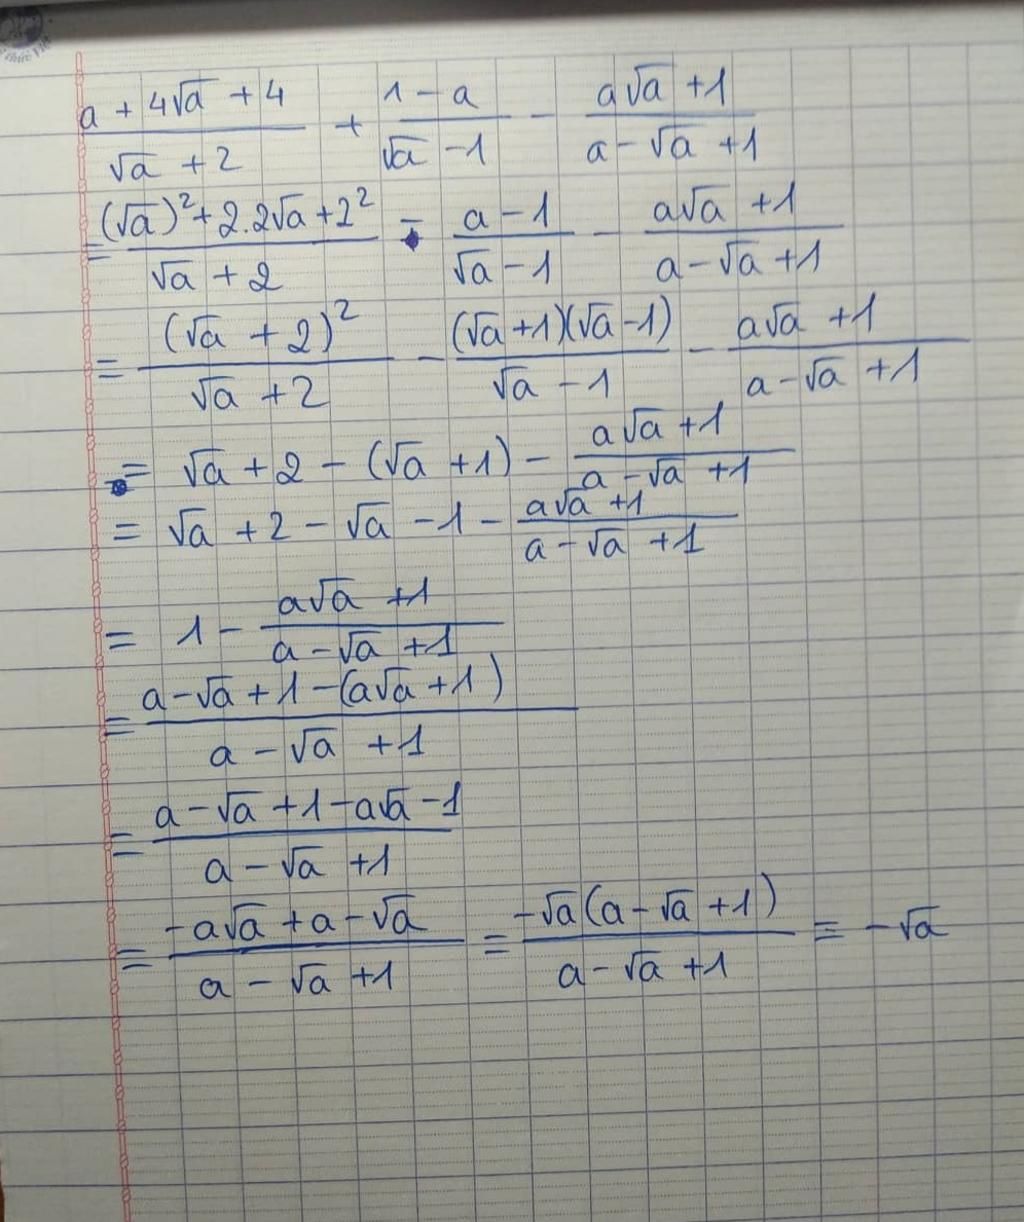 (a + 4√a + 4)/(√a + 2) + (1 - a)/(√a - 1) - (a√a + 1)/(a - √a + 1)
= ((√a)² + 2.2√a + 2²)/(√a + 2) - (a - 1)/(√a - 1) - (a√a + 1)/(a - √a + 1)
= (√a + 2)²/(√a + 2) - (√a + 1)(√a - 1)/(√a - 1) - (a√a + 1)/(a - √a + 1)
= √a + 2 - (√a + 1) - (a√a + 1)/(a - √a + 1)
= √a + 2 - √a - 1 - (a√a + 1)/(a - √a + 1)
= 1 - (a√a + 1)/(a - √a + 1)
= (a - √a + 1 - (a√a + 1))/(a - √a + 1)
= (a - √a + 1 - a√a - 1)/(a - √a + 1)
= (-a√a + a - √a)/(a - √a + 1) = -√a(a - √a + 1)/(a - √a + 1) = -√a